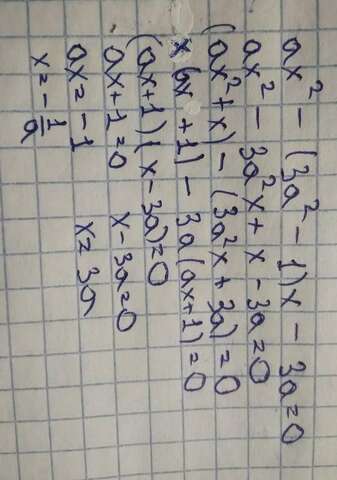 ax² - (3a² - 1)x - 3a = 0
ax² - 3a²x + x - 3a = 0
(ax² + x) - (3a²x + 3a) = 0
x(ax + 1) - 3a(ax + 1) = 0
(ax + 1)(x - 3a) = 0
ax + 1 = 0 x - 3a = 0
ax = -1 x = 3a
x = -1/a